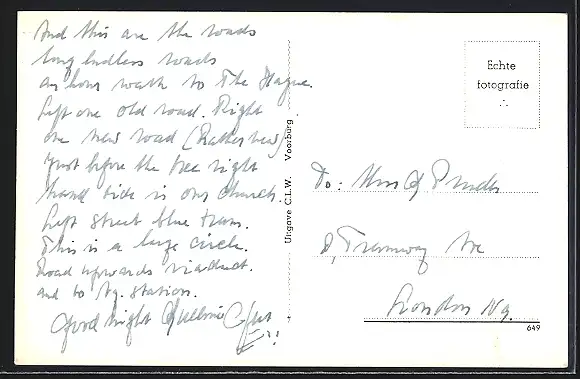 And this are the roads
long endless roads
an hour walk to The Hague.
Left one old road. Right
one new road (Rather new)
Just before the tree right
hand side is our church.
Left street blue tram.
This is a large circle.
Road upwards viaduct.
and to Ry. station.
Good night
Uitgave C.L.W. Voorburg
Echte
fotografie
To: Mrs
8, Tramway Ave
London N9.
649